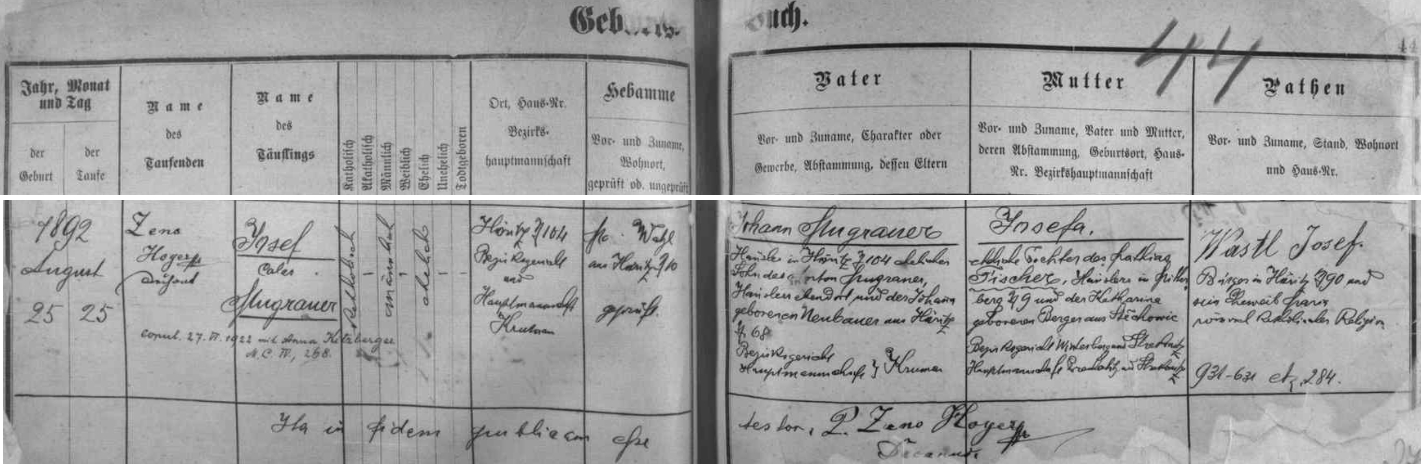 Geburts-buch.
44
Jahr, Monat
und Tag
der
Geburt
der
Taufe
Name
des
Taufenden
Name
des
Täuflings
Katholisch
Akatholisch
Männlich
Weiblich
Ehelich
Unehelich
Todtgeboren
Ort, Haus-Nr.
Bezirks-
hauptmannschaft
Hebamme
Vor- und Zuname,
Wohnort,
geprüft od. ungeprüft
Vater
Vor- und Zuname, Charakter oder
Gewerbe, Abstammung, dessen Eltern
Mutter
Vor- und Zuname, Vater und Mutter,
deren Abstammung, Geburtsort, Haus-
Nr. Bezirkshauptmannschaft
Pathen
Vor- und Zuname, Stand, Wohnort
und Haus-Nr.
1892
August
25 25
Zeno
Hoyer
Dechant
Josef
Cales
Mugrauer
copul. 27. 1922 mit Anna Kitzberger
N.C. IV, 268.
Katholisch
männlich
ehelich
Höritz 104
Bezirksgericht
und
Hauptmannschaft
Krumau
Wahl
aus Höritz 10
geprüft.
Johann Mugrauer
Häusler in Höritz 104 ehelicher
Sohn des Anton Mugrauer,
Häuslers ebendort und der Johanna
geborenen Neubauer aus Höritz
68
Bezirksgericht
Hauptmannschaft Krumau
Josefa.
eheliche Tochter des
Fischer, Häuslers in
berg 49 und der Katharina
geborenen Berger aus
Bezirksgericht Winterberg und
Hauptmannschaft und
Wastl Josef.
Bürger in Höritz 90 und
sein Eheweib
römisch katholischer Religion
931-631 284.
Ita in fidem publicam esse
testor, P. Zeno Hoyer
Decanus.